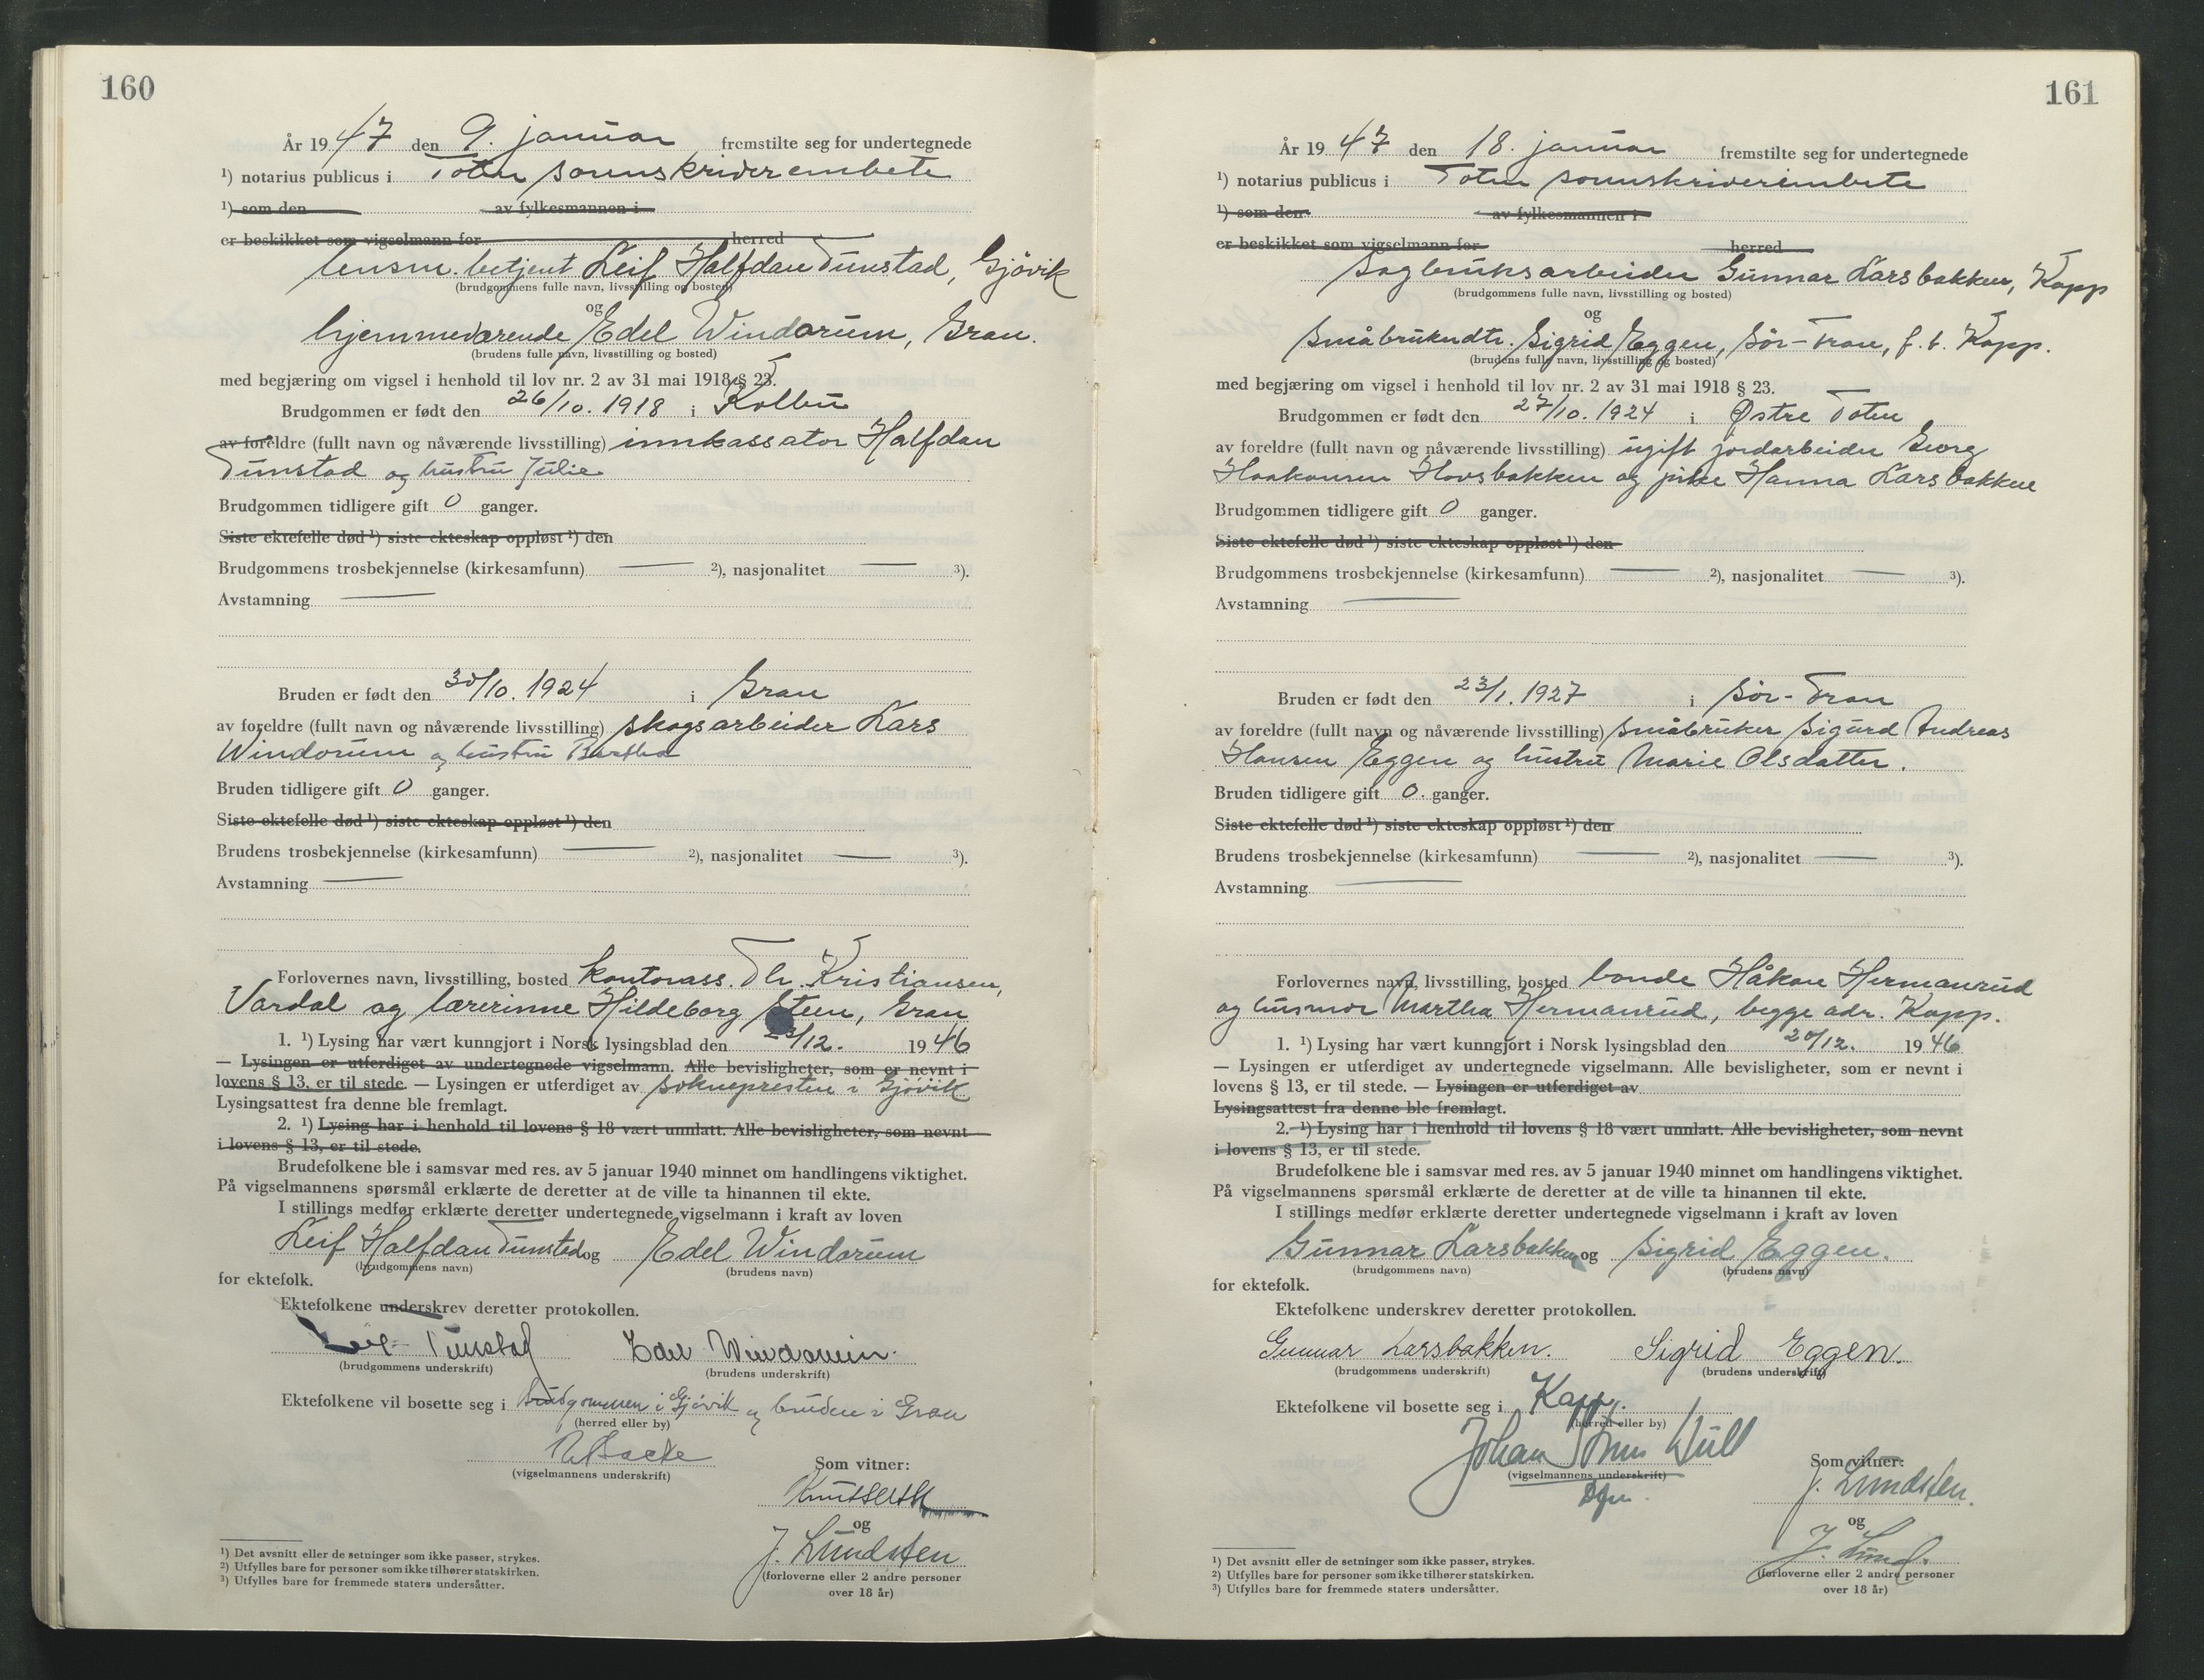 160
År 1947 den 9. januar fremstilte seg for undertegnede
¹) notarius publicus i Toten sorenskriverembete
¹) som den av fylkesmannen i
er beskikket som vigselmann for herred
lensm. betjent Leif Halfdan Tunstad, Gjövik
(brudgommens fulle navn, livsstilling og bosted)
og
hjemmeværende Edel Windorum, Gran.
(brudens fulle navn, livsstilling og bosted)
med begjæring om vigsel i henhold til lov nr. 2 av 31 mai 1918 § 23.
Brudgommen er født den 26/10. 1918 i Kolbu
av foreldre (fullt navn og nåværende livsstilling) innkassator Halfdan
Tunstad og hustru Julie
Brudgommen tidligere gift 0 ganger.
Siste ektefelle død ¹) siste ekteskap oppløst ¹) den
Brudgommens trosbekjennelse (kirkesamfunn) — ²), nasjonalitet — ³).
Avstamning —
Bruden er født den 30/10. 1924 i Gran
av foreldre (fullt navn og nåværende livsstilling) skogsarbeider Lars
Windorum og hustru Bertha
Bruden tidligere gift 0 ganger.
Siste ektefelle død ¹) siste ekteskap oppløst ¹) den
Brudens trosbekjennelse (kirkesamfunn) — ²), nasjonalitet — ³).
Avstamning —
Forlovernes navn, livsstilling, bosted kontorass. Th. Kristiansen,
Vardal og lærerinne Hildeborg Steen, Gran
1. ¹) Lysing har vært kunngjort i Norsk lysingsblad den /12. 1946
— Lysingen er utferdiget av undertegnede vigselmann. Alle bevisligheter, som er nevnt i
lovens § 13, er til stede. — Lysingen er utferdiget av soknepresten i Gjövik
Lysingsattest fra denne ble fremlagt.
2. ¹) Lysing har i henhold til lovens § 18 vært unnlatt. Alle bevisligheter, som nevnt
i lovens § 13, er til stede.
Brudefolkene ble i samsvar med res. av 5 januar 1940 minnet om handlingens viktighet.
På vigselmannens spørsmål erklærte de deretter at de ville ta hinannen til ekte.
I stillings medfør erklærte deretter undertegnede vigselmann i kraft av loven
Leif Halfdan Tunstad og Edel Windorum
(brudgommens navn) (brudens navn)
for ektefolk.
Ektefolkene underskrev deretter protokollen.
Leif Tunstad Edel Windorum.
(brudgommens underskrift) (brudens underskrift)
Ektefolkene vil bosette seg i brudgommen i Gjövik og bruden i Gran
(herred eller by)
(vigselmannens underskrift)
Som vitner:
og
J. Lundsten
(forloverne eller 2 andre personer
over 18 år)
¹) Det avsnitt eller de setninger som ikke passer, strykes.
²) Utfylles bare for personer som ikke tilhører statskirken.
³) Utfylles bare for fremmede staters undersåtter.
161
År 1947 den 18. januar fremstilte seg for undertegnede
¹) notarius publicus i Toten sorenskriverembete
¹) som den av fylkesmannen i
er beskikket som vigselmann for herred
Sagbruksarbeider Gunnar Larsbakken, Kapp
(brudgommens fulle navn, livsstilling og bosted)
og
Småbrukerdtr. Sigrid Eggen, Sör-Fron, f. t. Kapp.
(brudens fulle navn, livsstilling og bosted)
med begjæring om vigsel i henhold til lov nr. 2 av 31 mai 1918 § 23.
Brudgommen er født den 27/10. 1924 i Østre Toten
av foreldre (fullt navn og nåværende livsstilling) ugift jordarbeider Georg
Haakonsen Hovsbakken og pike Hanna Larsbakken
Brudgommen tidligere gift 0 ganger.
Siste ektefelle død ¹) siste ekteskap oppløst ¹) den
Brudgommens trosbekjennelse (kirkesamfunn) — ²), nasjonalitet — ³).
Avstamning —
Bruden er født den 23/1. 1927 i Sör-Fron
av foreldre (fullt navn og nåværende livsstilling) småbruker Sigurd Andreas
Hansen Eggen og hustru Marie Olsdatter.
Bruden tidligere gift 0. ganger.
Siste ektefelle død ¹) siste ekteskap oppløst ¹) den
Brudens trosbekjennelse (kirkesamfunn) — ²), nasjonalitet — ³).
Avstamning —
Forlovernes navn, livsstilling, bosted bonde Håkon Hermanrud
og husmor Martha Hermanrud, begge adr. Kapp.
1. ¹) Lysing har vært kunngjort i Norsk lysingsblad den 20/12. 1946
— Lysingen er utferdiget av undertegnede vigselmann. Alle bevisligheter, som er nevnt i
lovens § 13, er til stede. — Lysingen er utferdiget av
Lysingsattest fra denne ble fremlagt.
2. ¹) Lysing har i henhold til lovens § 18 vært unnlatt. Alle bevisligheter, som nevnt
i lovens § 13, er til stede.
Brudefolkene ble i samsvar med res. av 5 januar 1940 minnet om handlingens viktighet.
På vigselmannens spørsmål erklærte de deretter at de ville ta hinannen til ekte.
I stillings medfør erklærte deretter undertegnede vigselmann i kraft av loven
Gunnar Larsbakken og Sigrid Eggen.
(brudgommens navn) (brudens navn)
for ektefolk.
Ektefolkene underskrev deretter protokollen.
Gunnar Larsbakken. Sigrid Eggen.
(brudgommens underskrift) (brudens underskrift)
Ektefolkene vil bosette seg i Kapp.
(herred eller by)
Johan
(vigselmannens underskrift)
Som vitner:
J. Lundsten.
og
J. Lund.
(forloverne eller 2 andre personer
over 18 år)
¹) Det avsnitt eller de setninger som ikke passer, strykes.
²) Utfylles bare for personer som ikke tilhører statskirken.
³) Utfylles bare for fremmede staters undersåtter.